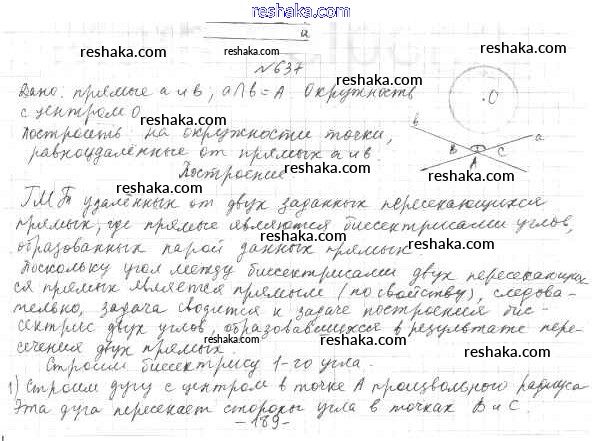 www.reshaka.com
a
reshaka.com reshaka.com reshaka.com
№637
Дано: прямые a и b, a∩b=A. Окружность
с центром O
Построить: на окружности точки,
равноудалённые от прямых a и b.
O
b
a
B
C
A
reshaka.com reshaka.com reshaka.com
Построение
ГМТ удалённых от двух заданных пересекающихся
прямых, где прямые являются биссектрисами углов,
образованных парой данных прямых.
reshaka.com reshaka.com reshaka.com
Поскольку угол между биссектрисами двух пересекающих-
ся прямых является прямым (по свойству), следова-
тельно, задача сводится к задаче построения бис-
сектрис двух углов, образовавшихся в результате пере-
сечения двух прямых.
reshaka.com reshaka.com reshaka.com
Строим биссектрису 1-го угла.
1) Строим дугу с центром в точке A произвольного радиуса
Эта дуга пересекает стороны угла в точках B и C.
reshaka.com reshaka.com reshaka.com
-189-